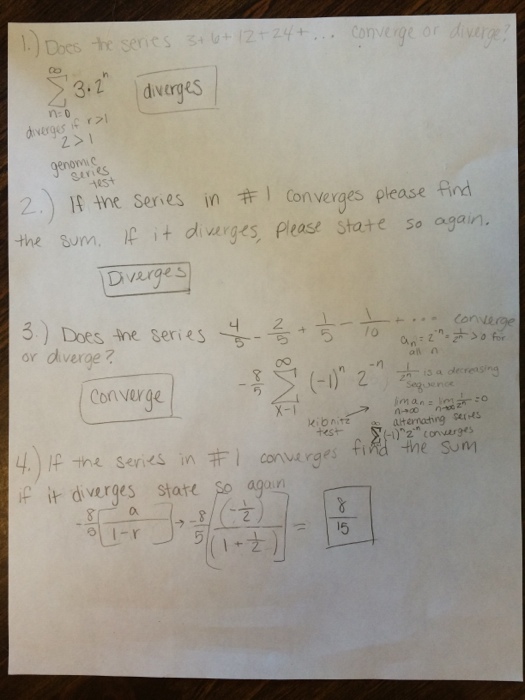 1.) Does the series 3+6+12+24+... converge or diverge?
∞
Σ 3·2^n
n=0
diverges
diverges if r>1
2>1
genomic
series
test
2.) If the series in #1 converges please find
the sum. If it diverges, please state so again.
Diverges
3.) Does the series 4/5 - 2/5 + 1/5 - 1/10 + ... converge
or diverge?
a_n = 2^-n = 1/2^n >0 for
all n
converge
-8/5 ∞ Σ x-1 (-1)^n 2^-n
1/2^n is a decreasing
sequence
lim a_n = lim 1/2^n = 0
n→∞ n→∞
leibnitz
test
alternating series
∞ Σ (-1)^n 2^-n converges
4.) If the series in #1 converges find the sum
if it diverges state so again
-8/5 [a/(1-r)] → -8/5 [(-1/2)/(1+1/2)] = 8/15